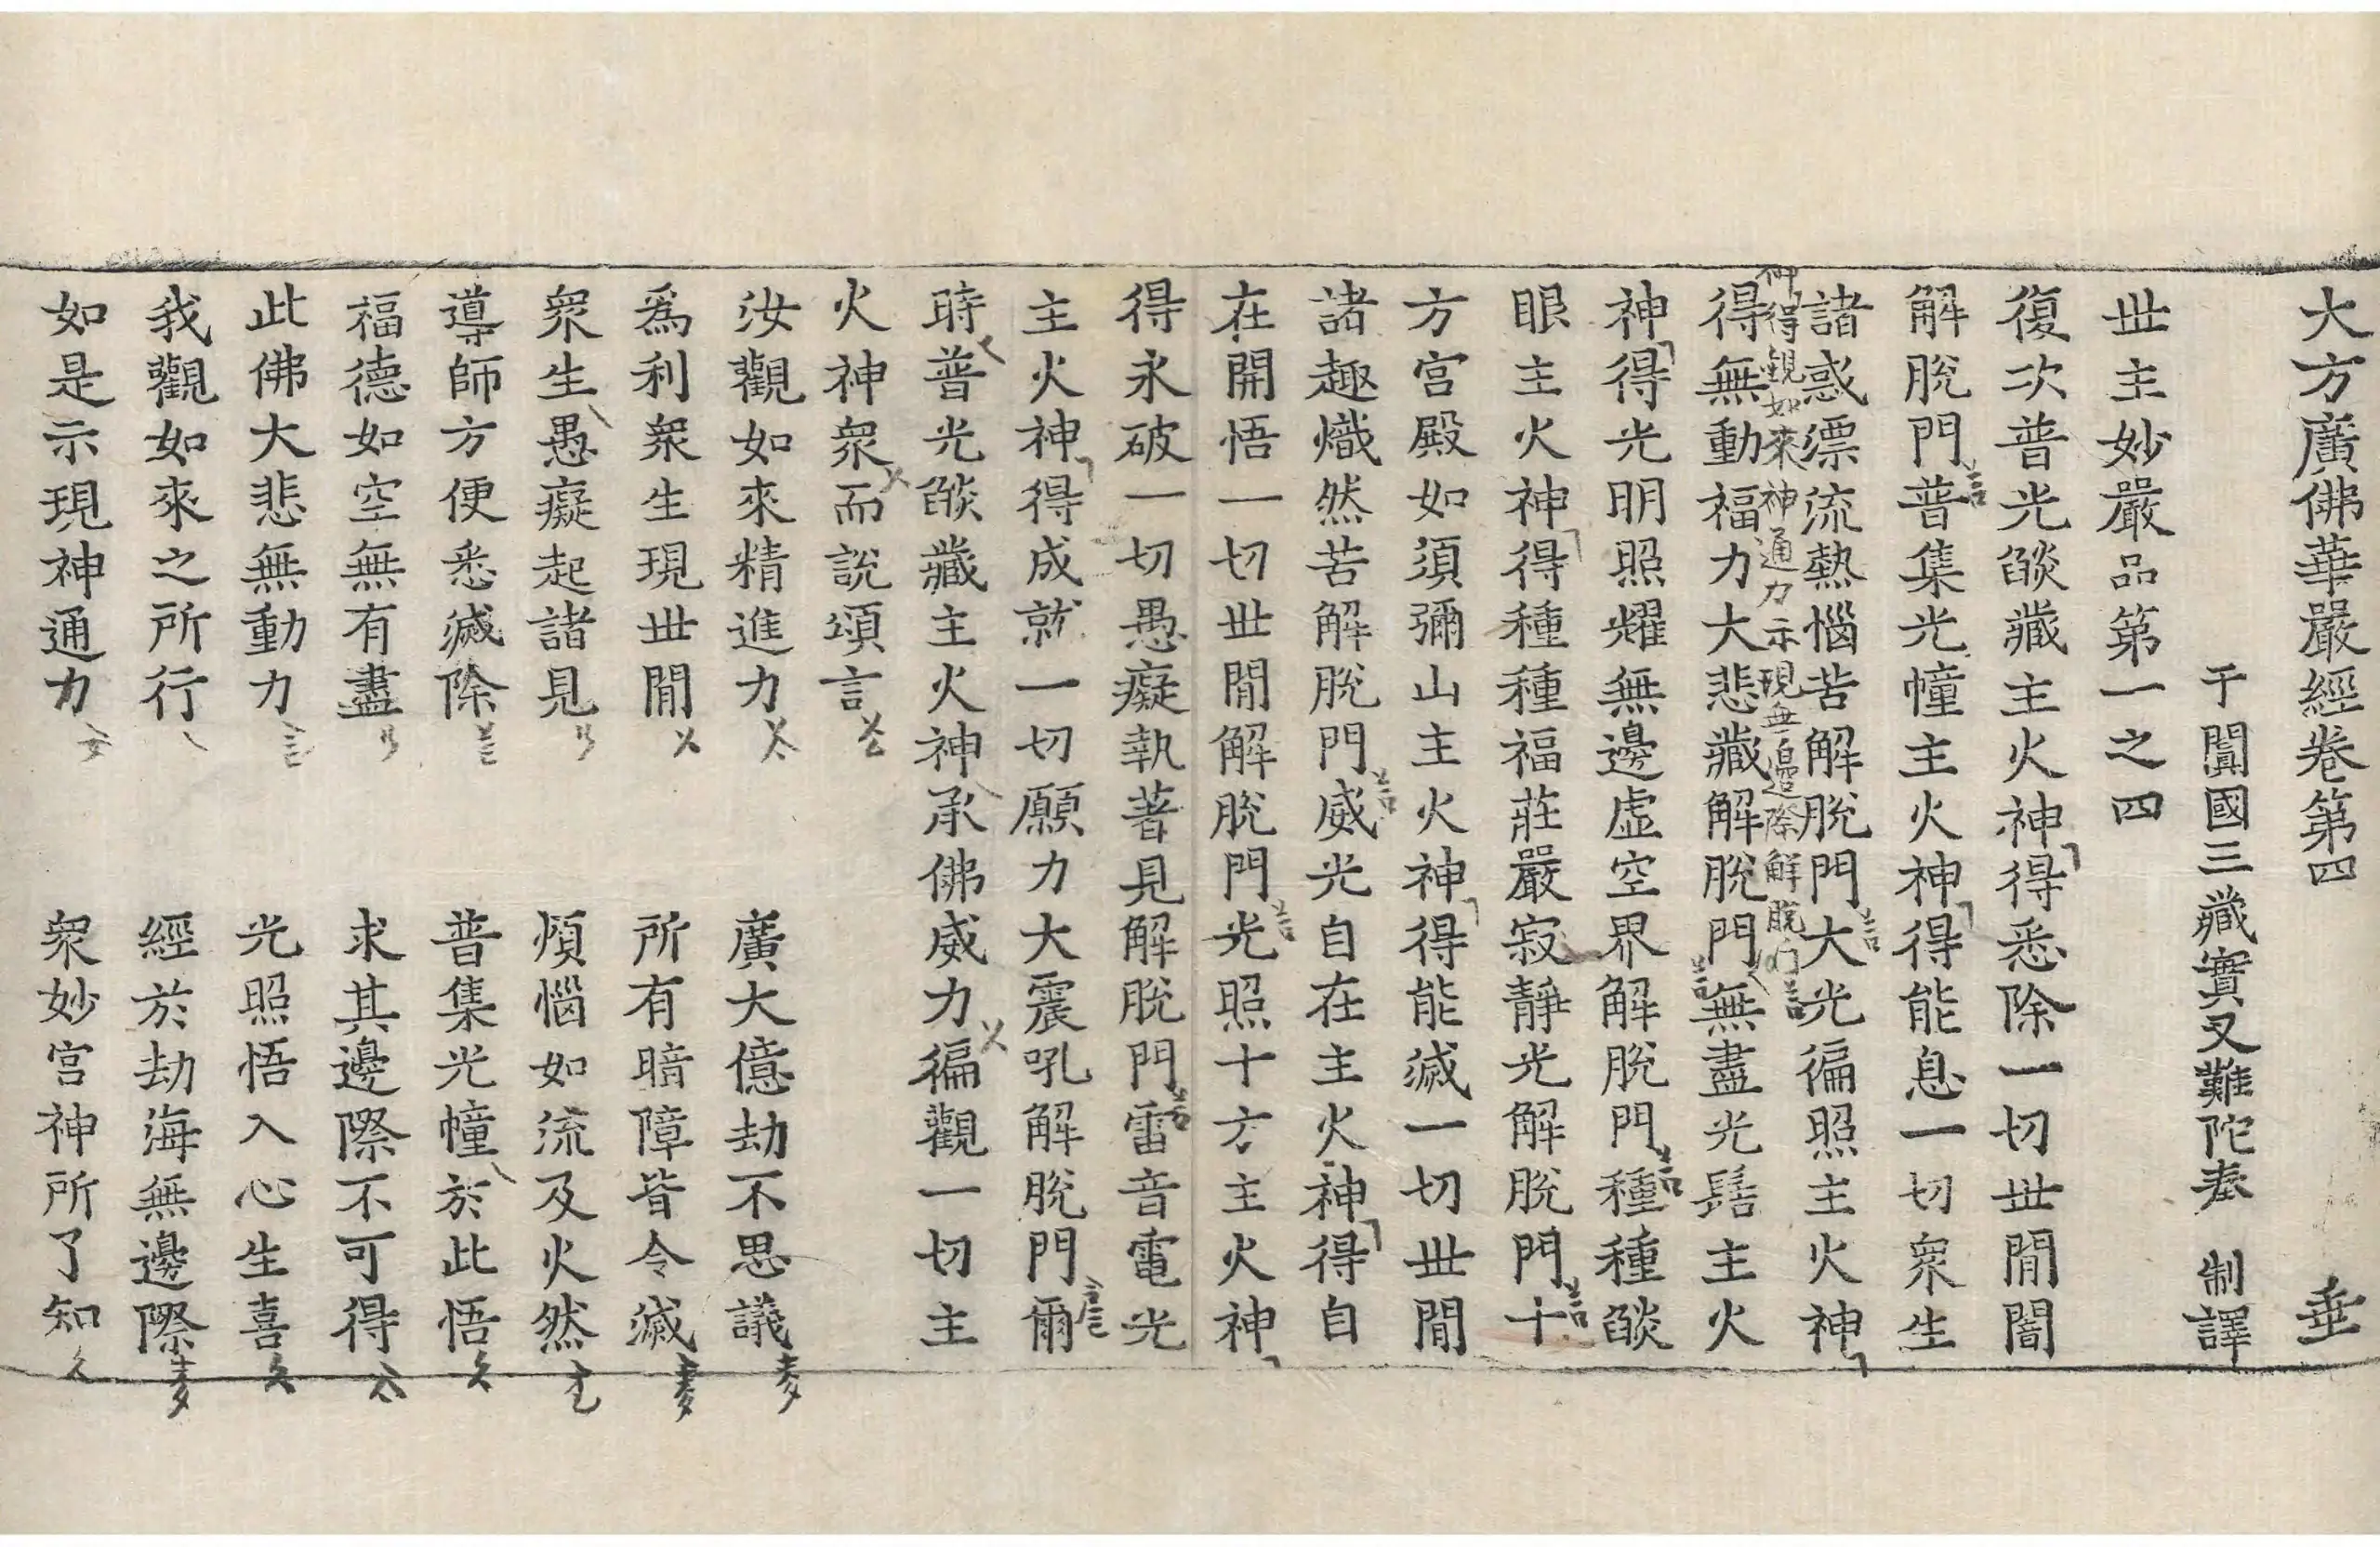 大方廣佛華嚴經卷第四 垂
于闐國三藏實叉難陀奉 制譯
世主妙嚴品第一之四
復次普光𦦨藏主火神得悉除一切世閒闇
解脫門普集光幢主火神得能息一切衆生
諸惑漂流熱惱苦解脫門大光徧照主火神
神得觀如來神通力示現無邊際解脫門
得無動福力大悲藏解脫門無盡光髻主火
神得光明照耀無邊虛空界解脫門種種𦦨
眼主火神得種種福莊嚴寂靜光解脫門十
方宮殿如須彌山主火神得能滅一切世閒
諸趣熾然苦解脫門威光自在主火神得自
在開悟一切世閒解脫門光照十方主火神
得永破一切愚癡執著見解脫門雷音電光
主火神得成就一切願力大震吼解脫門爾
時普光𦦨藏主火神承佛威力徧觀一切主
火神衆而說頌言
汝觀如來精進力 廣大億劫不思議
爲利衆生現世閒 所有暗障皆令滅
衆生愚癡起諸見 煩惱如流及火然
導師方便悉滅除 普集光幢於此悟
福德如空無有盡 求其邊際不可得
此佛大悲無動力 光照悟入心生喜
我觀如來之所行 經於劫海無邊際
如是示現神通力 衆妙宮神所了知